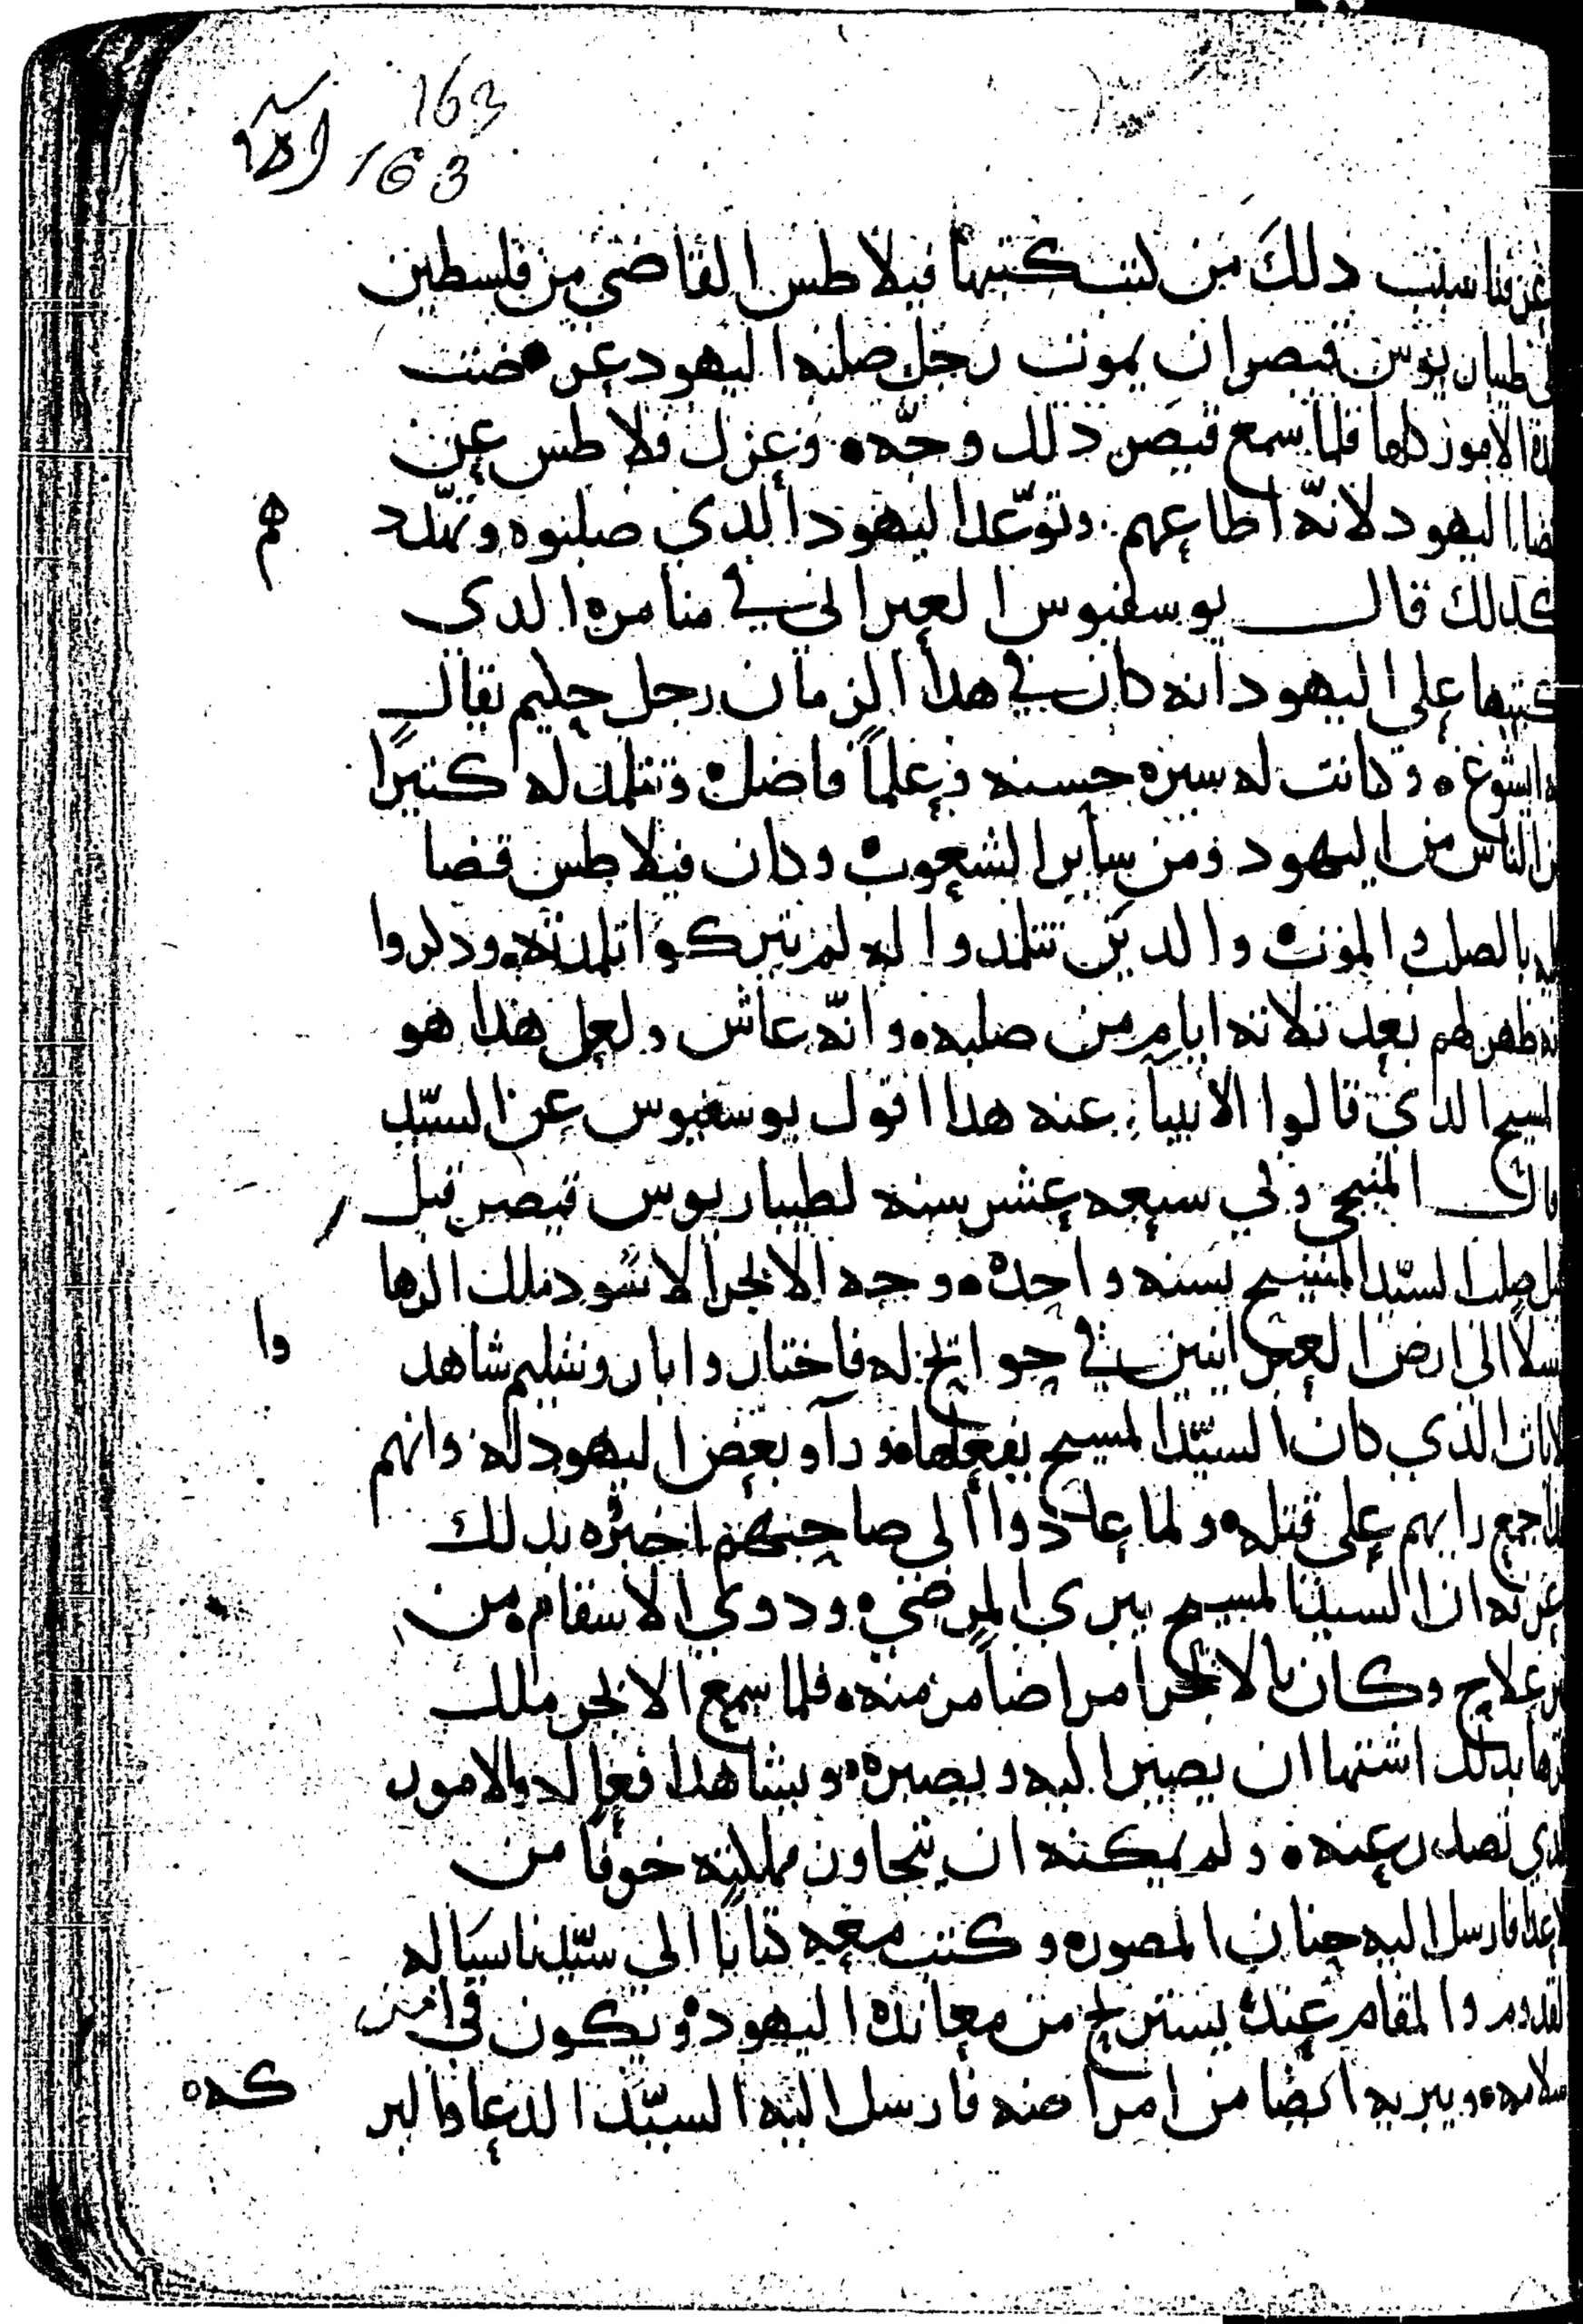 163
163
عرفنا سبب دلك من كتب كتبها فيلاطس القاضي من فلسطين
طيباريوس قيصر ان بموت رجل صلبه اليهود عرضت
الامور كلها فلما سمع قيصر دلك وجّه وعزل فلاطس عن
اليهود لانّه اطاعهم وتوعّد اليهود الدي صلبوه وتهدّد
هم
كدلك قال يوسفيوس العبراني في منامره الدي
كتبها على اليهود انه كان في هدا الزمان رجل حليم يقال
ايشوع وكانت له سيره حسنه وعلماً فاضل وتتلمد له كتيرًا
من الناس من اليهود ومن ساير الشعوب وكان فيلاطس قضا
بالصلب والموت والدين تتلمدوا له لم يتركوا تلمدته ودكروا
انه ظهر لهم بعد تلاته ايام من صلبه وانّه عاش ولعل هدا هو
المسيح الدي قالوا الانبياء عنه هدا اقول يوسفيوس عن السيّد
قال المنبجي وفي سبعه عشر سنه لطيباريوس قيصر قبل
صلب السيّد المسيح بسنه واحده وجه الابجر الاسود ملك الرها
رسلاً الى ارض العبرانيين في حوايج له فاختاروا بارونشليم شاهد
وا
الايات الذي كان السيّد المسيح يفعلها وراو بعض اليهود له وانهم
اجمع رايهم على قتله ولما عادوا الى صاحبهم اخبروه بدلك
ان السيد المسيح يبري المرضى ودوي الاسقام من
علاج وكان بالابجر امراضاً مزمنه فلما سمع الابجر ملك
الرها بدلك اشتها ان يصير اليه ويبصره ويشاهد افعاله والامور
الدي تصدر عنه ولم يمكنه ان يتجاوز مملكته خوفًا من
فارسل اليه حنان المصوره وكتب معه كتابًا الى سيّدنا يساله
القدوم والمقام عنده يستريح من معانده اليهود ويكون في امن
وسلامه ويبريه ايضا من امراضه فارسل اليه السيّد الدعا والبر
كه